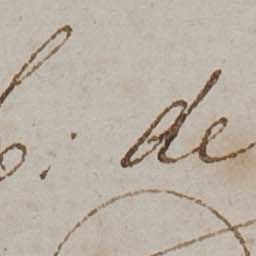 b: de